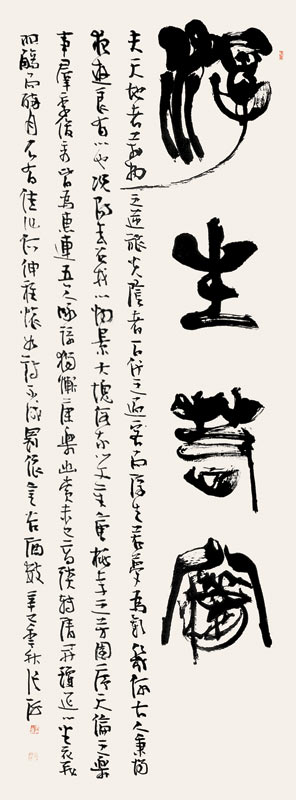 浮生若夢
夫天地者萬物之逆旅光陰者百代之過客而浮生若夢為歡幾何古人秉燭
夜遊良有以也況陽春召我以煙景大塊假我以文章會桃李之芳園序天倫之樂
事群季俊秀皆為惠連吾人詠歌獨慚康樂幽賞未已高談轉清開瓊筵以坐花飛
羽觴而醉月不有佳作何伸雅懷如詩不成罰依金谷酒數 秋